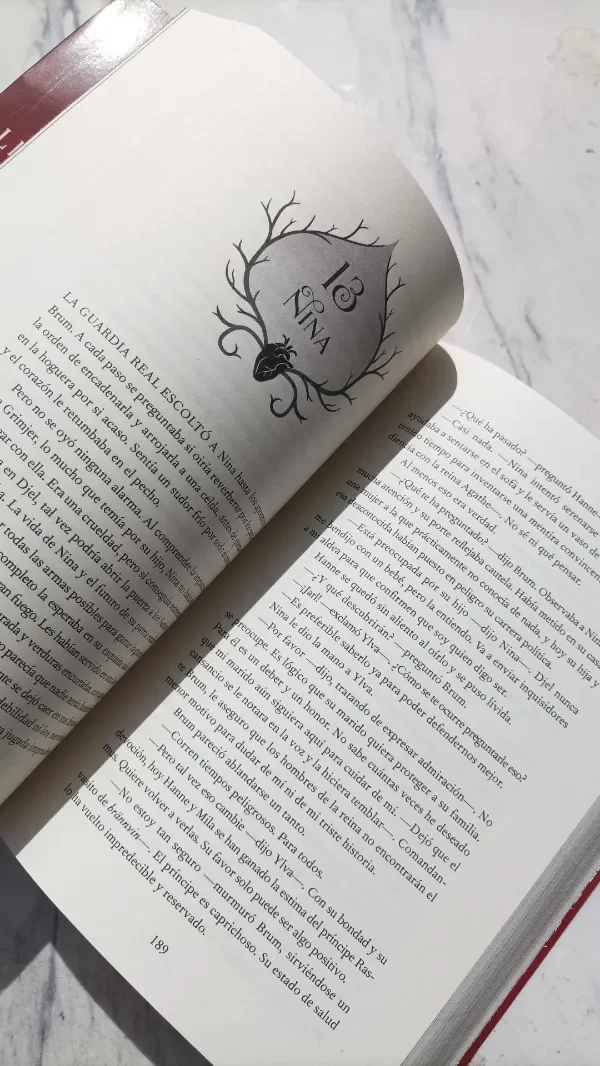 13
NINA
LA GUARDIA REAL ESCOLTÓ A Nina hasta los
Brum. A cada paso se preguntaba si oiría reverberar por
la orden de encadenarla y arrojarla a una celda,
en la hoguera por si acaso. Sentía un sudor frío por
y el corazón le retumbaba en el pecho.
Pero no se oyó ninguna alarma. Al comprender la
a Grimjer, lo mucho que temía por su hijo, Nina
con ella. Era una crueldad, pero si conseguía
en Djel, tal vez podría abrir la puerta a los
La vida de Nina y el futuro de su
todas las armas posibles para
completo la esperaba en su
fuego. Les habían servido
y verduras
parecía que
se dejó caer en
debilidad ni los
jugada
—¿Qué ha pasado? —preguntó Hanne
—Casi nada. —Nina intentó serenarse
ayudaba a sentarse en el sofá y le servía un vaso de
tenido tiempo para inventarse una mentira
diencia con la reina Agathe—. No sé ni qué pensar.
Al menos eso era verdad.
—¿Qué te ha preguntado? —dijo Brum. Observaba a Nina
mucha atención y su porte reflejaba cautela. Había metido en su casa
una mujer a la que prácticamente no conocía de nada, y hoy su hija y
esa desconocida habían puesto en peligro su carrera política.
—Está preocupada por su hijo —dijo Nina—. Djel nunca
me bendijo con un bebé, pero la entiendo. Va a enviar inquisidores
a mi aldea para que confirmen que soy quien digo ser.
Hanne se quedó sin aliento al oírlo y se puso lívida.
—¿Y qué descubrirán? —preguntó Brum.
—¡Jarl! —exclamó Ylva—. ¿Cómo se te ocurre preguntarle eso?
—Es preferible saberlo ya para poder defendernos mejor.
Nina le dio la mano a Ylva.
—Por favor —dijo, tratando de expresar admiración—. No
se preocupe. Es lógico que su marido quiera proteger a su familia.
Para él es un deber y un honor. No sabe cuántas veces he deseado
que mi marido aún siguiera aquí para cuidar de mí. —Dejó que el
cansancio se le notara en la voz y la hiciera temblar—. Comandan-
te Brum, le aseguro que los hombres de la reina no encontrarán el
menor motivo para dudar de mí ni de mi triste historia.
Brum pareció ablandarse un tanto.
—Corren tiempos peligrosos. Para todos.
—Pero tal vez eso cambie —dijo Ylva—. Con su bondad y su
devoción, hoy Hanne y Mila se han ganado la estima del príncipe Ras-
mus. Quiere volver a verlas. Su favor solo puede ser algo positivo.
—No estoy tan seguro —murmuró Brum, sirviéndose un
vasito de brännvin—. El príncipe es caprichoso. Su estado de salud
lo ha vuelto impredecible y reservado.
189